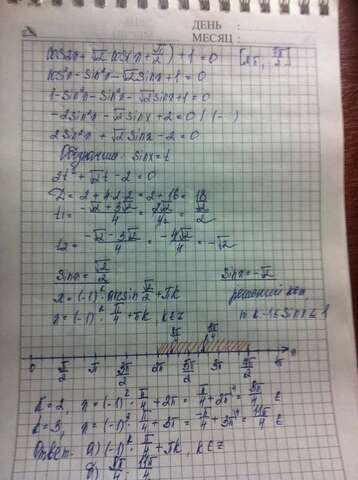 ДЕНЬ :
МЕСЯЦ :
cos2x + √2 cos(x + π/2) + 1 = 0 [2π; 7π/2]
cos²x - sin²x - √2 sinx + 1 = 0
1 - sin²x - sin²x - √2 sinx + 1 = 0
-2sin²x - √2 sinx + 2 = 0 | (-)
2sin²x + √2 sinx - 2 = 0
sinx = t
2t² + √2t - 2 = 0
D = 2 + 4·2·2 = 2 + 16 = 18
t₁ = (-√2 + 3√2)/4 = 2√2/4 = √2/2
t₂ = (-√2 - 3√2)/4 = -4√2/4 = -√2
sinx = √2/2 sinx = -√2
x = (-1)ᵏ arcsin √2/2 + πk решений нет,
x = (-1)ᵏ π/4 + πk, k∈z т.к -1≤sinx≤1
0 π/2 π 3π/2 2π 5π/2 3π 7π/2
k = 2, x = (-1)² · π/4 + 2π = π/4 + 2π = 9π/4 ∈
k = 3, x = (-1)³ · π/4 + 3π = -π/4 + 3π = 11π/4 ∈
Ответ: а) (-1)ᵏ · π/4 + πk, k∈z
9π/4; 11π/4